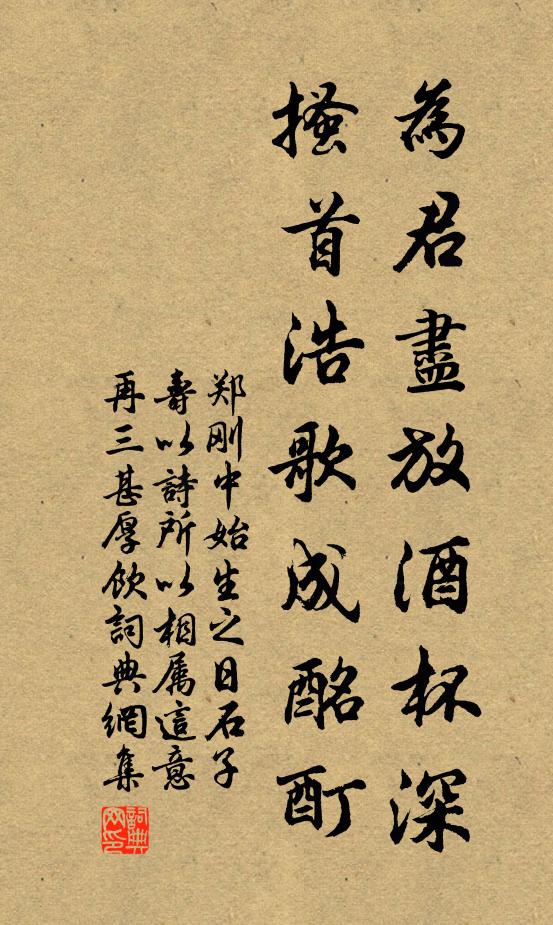 為君盡放酒杯深
搔首浩歌成酩酊
郑刚中始生之日石子
壽以詩所以相属這意
再三甚厚飲詞典網集
詞典網印